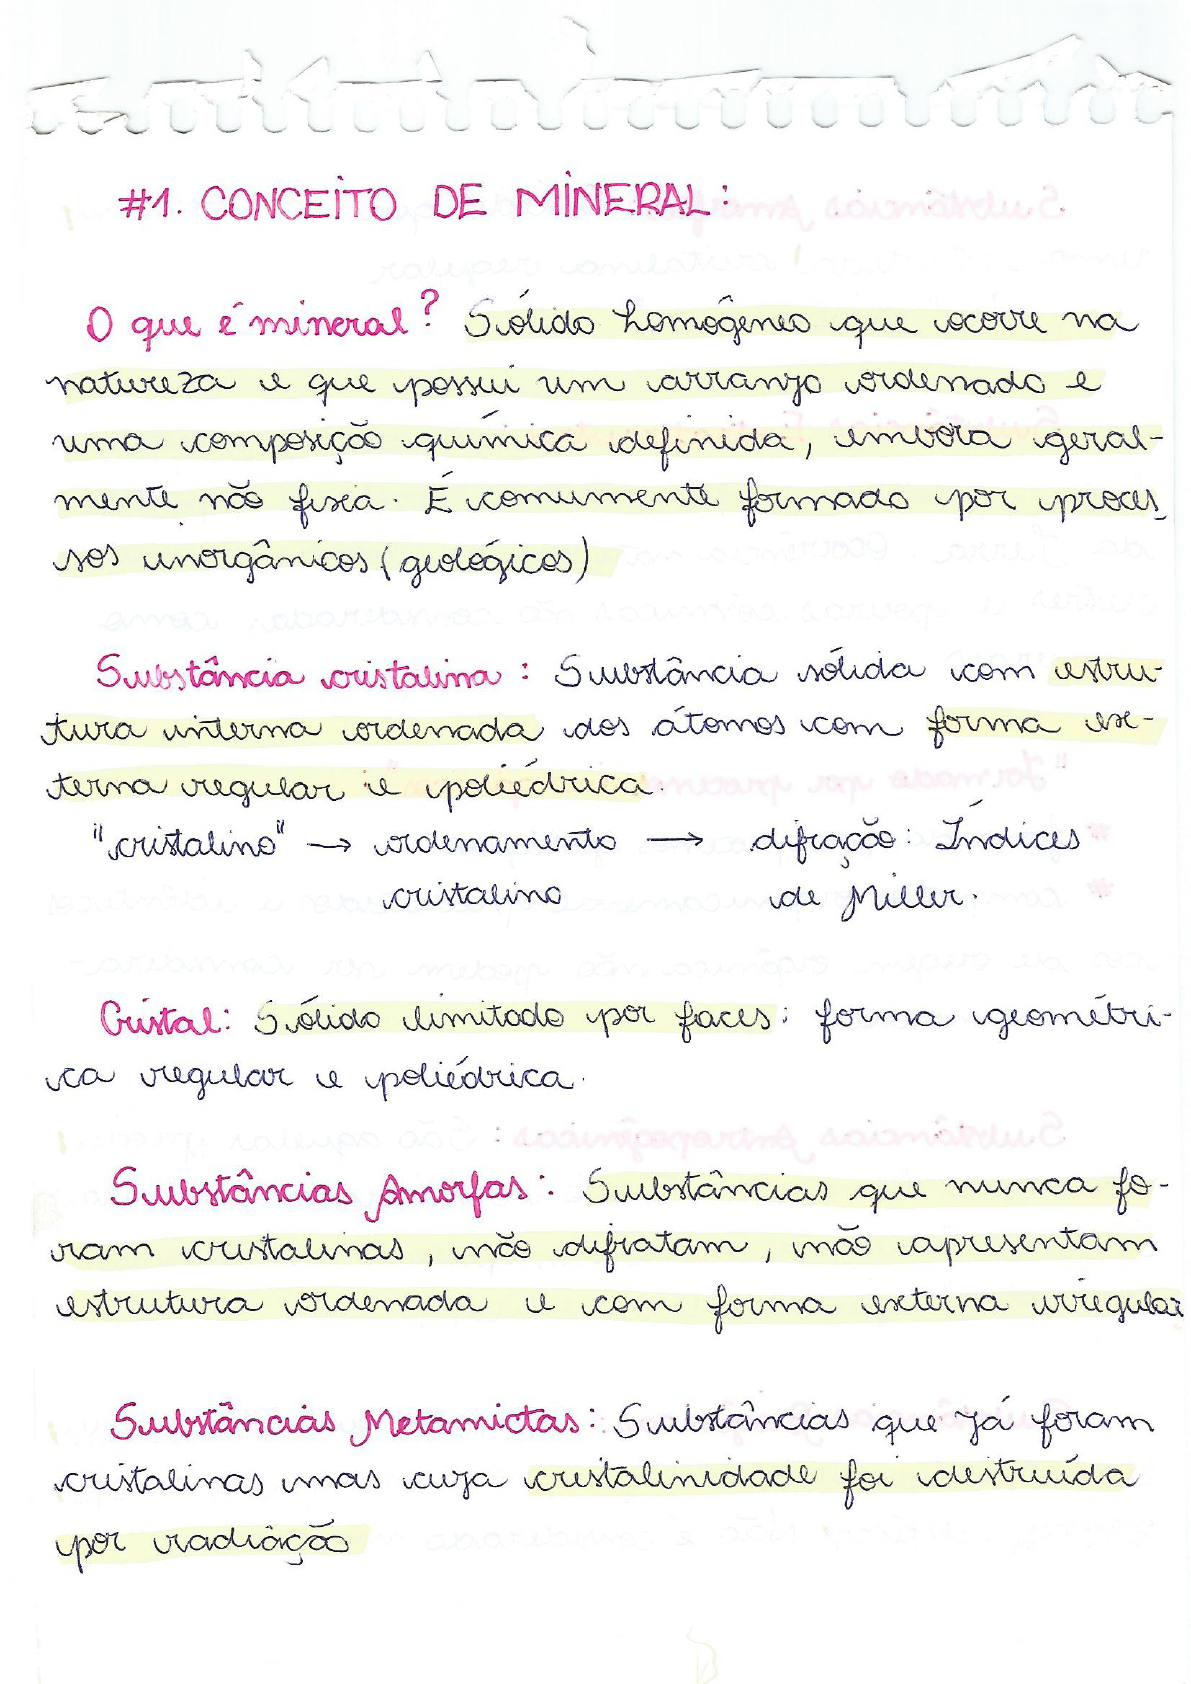 #1. CONCEITO DE MINERAL:
O que é mineral? Sólido homogêneo que ocorre na
natureza e que possui um arranjo ordenado e
uma composição química definida, embora geral-
mente não fixa. É comumente formado por proces_
sos inorgânicos (geológicos)
Substância cristalina: Substância sólida com estru-
tura interna ordenada dos átomos com forma ex-
terna regular e poliédrica.
"cristalino" → ordenamento → difração: Índices
cristalino de Miller.
Cristal: Sólido limitado por faces; forma geométri-
ca regular e poliédrica.
Substâncias Amorfas: Substâncias que nunca fo-
ram cristalinas, não difratam, não apresentam
estrutura ordenada e com forma externa irregular
Substâncias Metamictas: Substâncias que já foram
cristalinas mas cuja cristalinidade foi destruída
por radiação